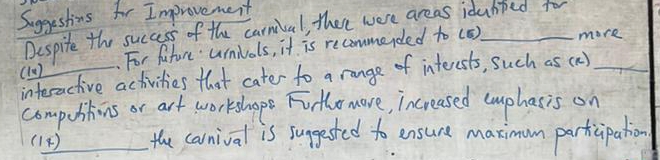 Suggestions for Improvement
Despite the success of the carnival, there were areas identified for
(14)________. For future carnivals, it is recommended to (15)________ more
interactive activities that cater to a range of interests, such as (16)____
competitions or art workshops Furthermore, increased emphasis on
(17)________ the carnival is suggested to ensure maximum participation.